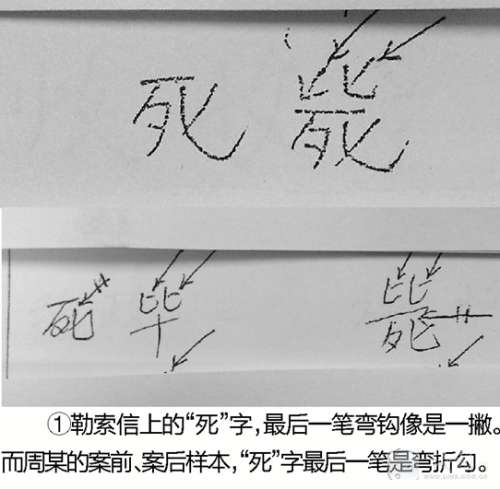 死 毙
死 毕 毙
①勒索信上的“死”字,最后一笔弯钩像是一撇。
而周某的案前、案后样本,“死”字最后一笔是弯折勾。